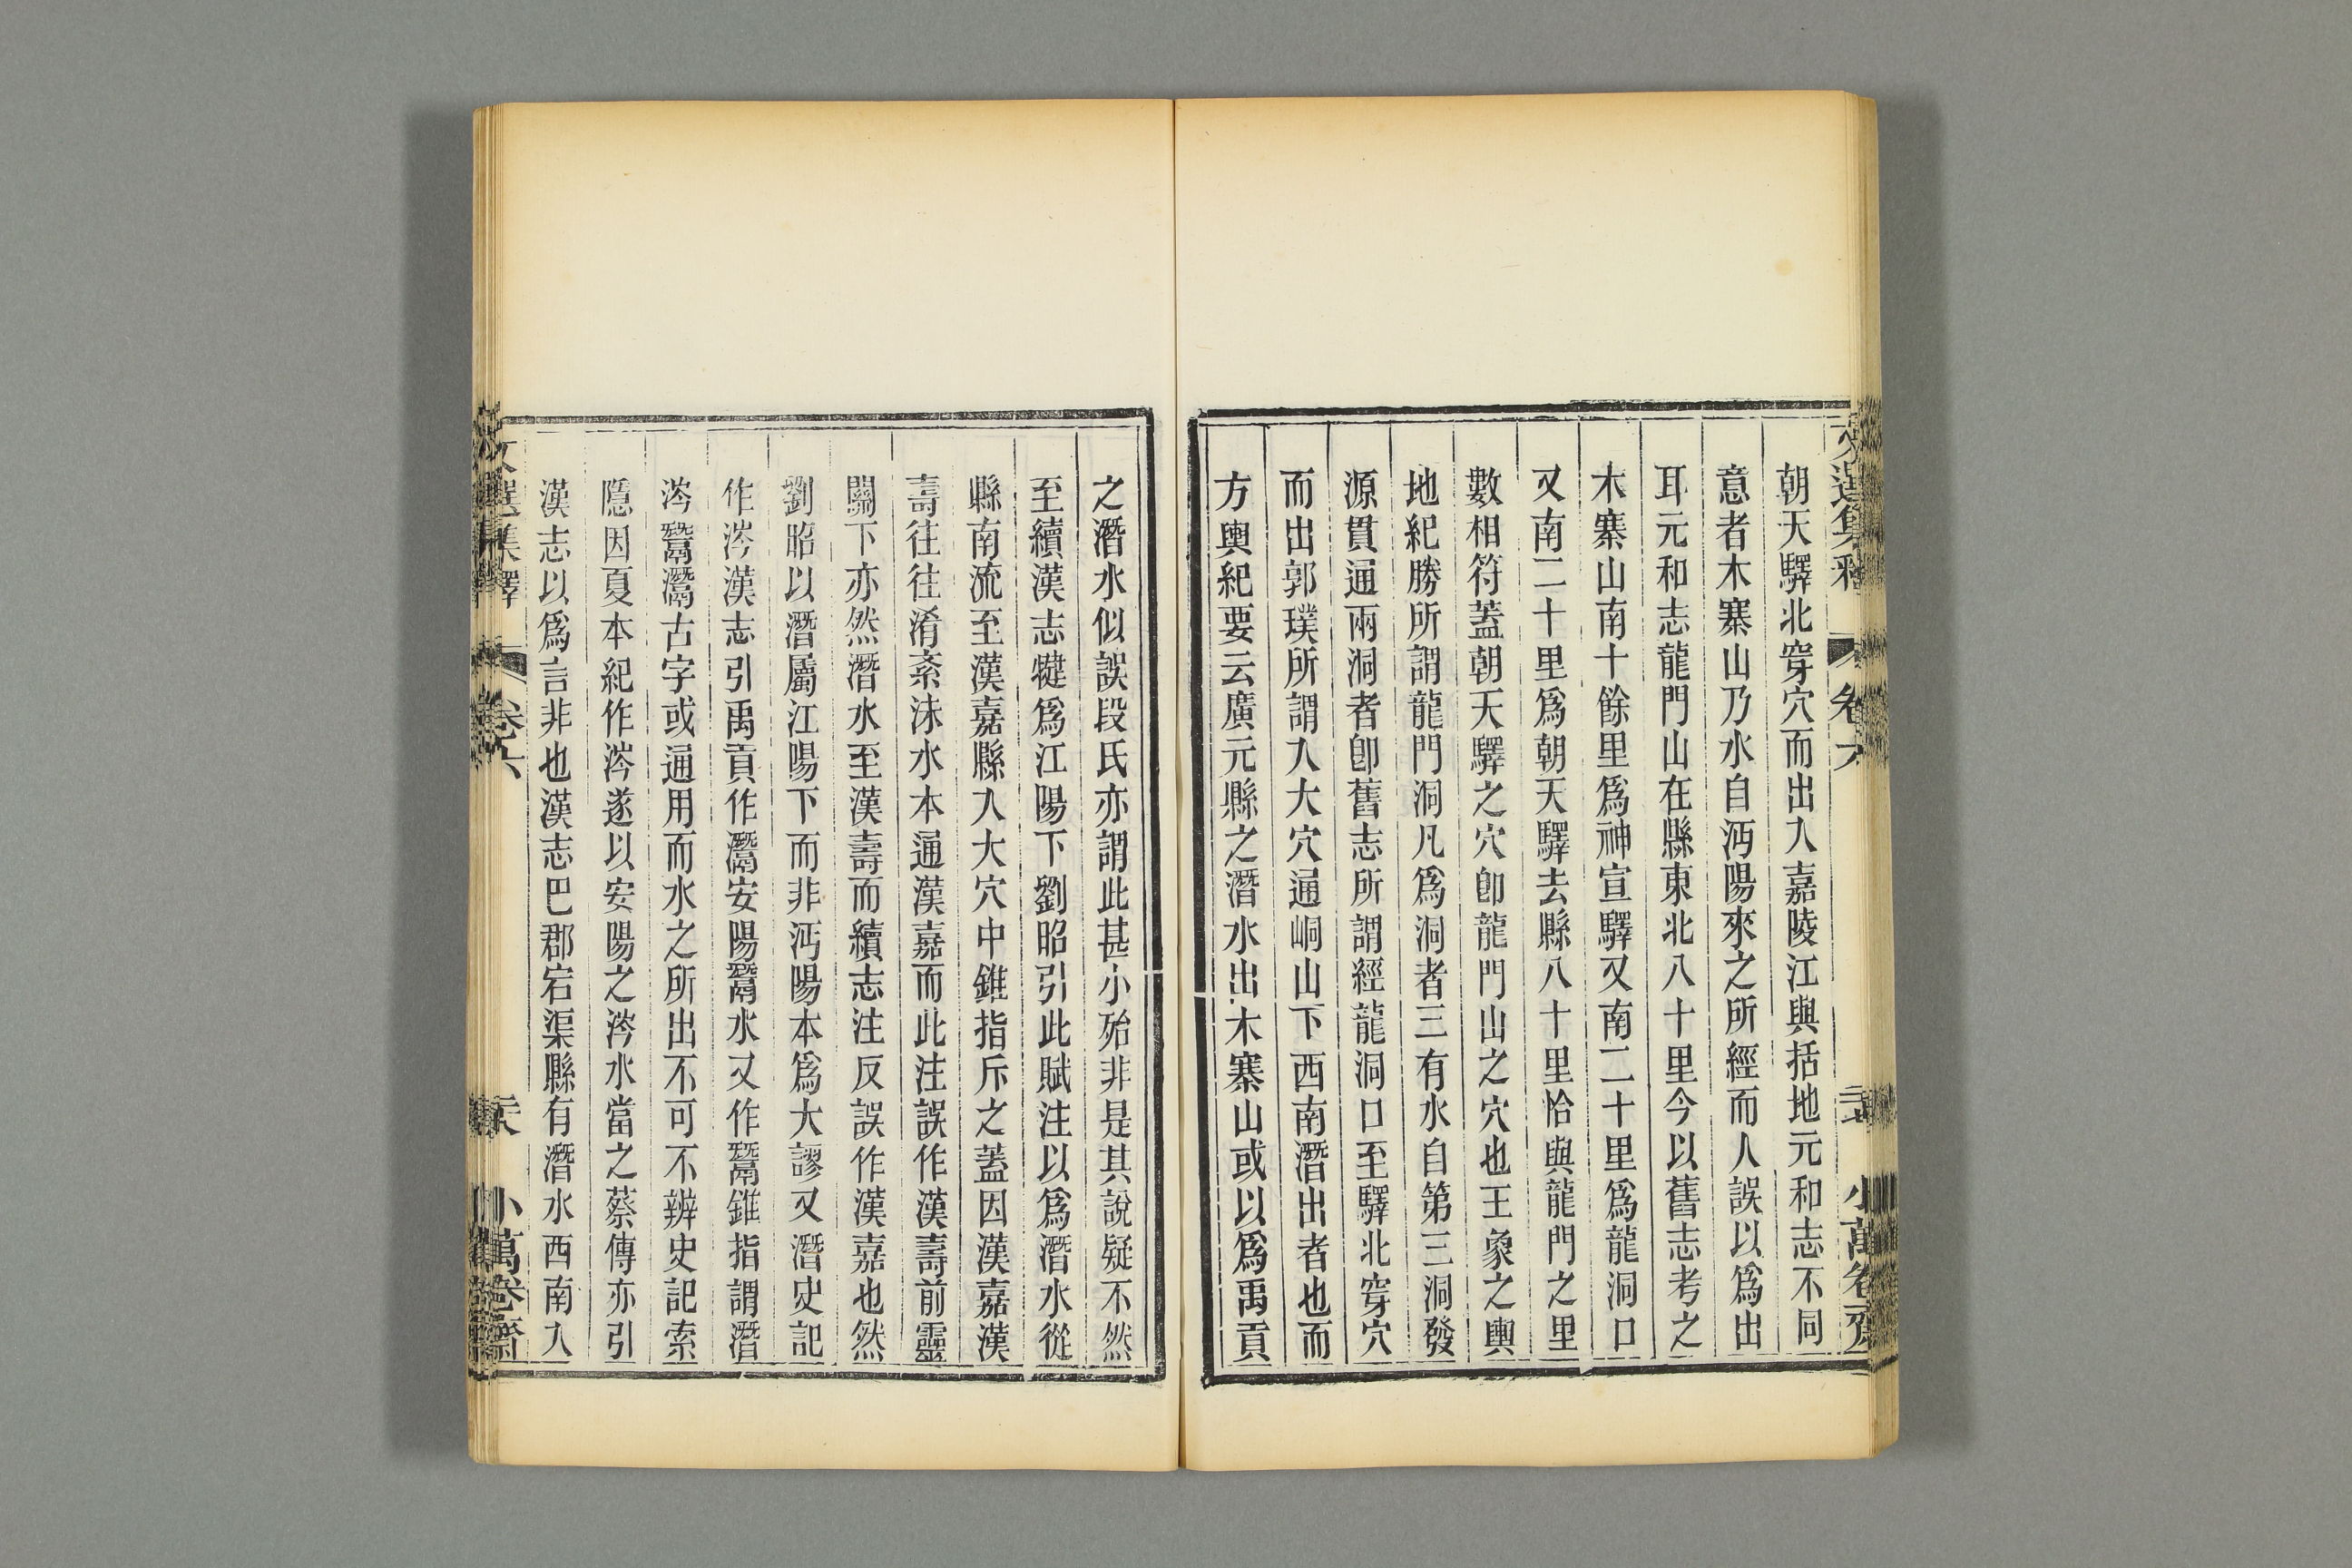 朝天驛北穿穴而出入嘉陵江與括地元和志不同
意者木寨山乃水自沔陽來之所經而人誤以爲出
耳元和志龍門山在縣東北八十里今以舊志考之
木寨山南十餘里爲神宣驛又南二十里爲龍洞口
又南二十里爲朝天驛去縣八十里恰與龍門之里
數相符蓋朝天驛之穴卽龍門山之穴也王象之輿
地紀勝所謂龍門洞凡爲洞者三有水自第三洞發
源貫通兩洞者卽舊志所謂經龍洞口至驛北穿穴
而出郭璞所謂入大穴通峒山下西南潛出者也而
方輿紀要云廣元縣之潛水出木寨山或以爲禹貢
之潛水似誤段氏亦謂此甚小殆非是其說疑不然
至續漢志犍爲江陽下劉昭引此賦注以爲潛水從
縣南流至漢嘉縣入大穴中錐指斥之蓋因漢嘉漢
壽往往淆紊沫水本通漢嘉而此注誤作漢壽前靈
關下亦然潛水至漢壽而續志注反誤作漢嘉也然
劉昭以潛屬江陽下而非沔陽本爲大謬又潛史記
作涔漢志引禹貢作灊安陽鬵水又作鬵錐指謂潛
涔鬵灊古字或通用而水之所出不可不辨史記索
隱因夏本紀作涔遂以安陽之涔水當之蔡傳亦引
漢志以爲言非也漢志巴郡宕渠縣有潛水西南入
文選集釋
卷六
小萬卷齋